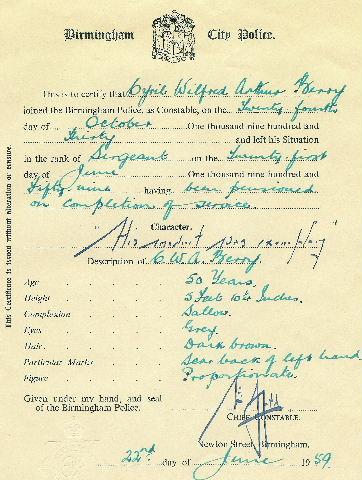 Birmingham City Police.
This is to certify that Cyril Wilfred Arthur Berry
joined the Birmingham Police, as Constable, on the Twenty fourth
day of October One thousand nine hundred and
Thirty and left his Situation
in the rank of Sergeant on the Twenty first
day of June One thousand nine hundred and
Fifty nine having been pensioned
on completion of service.
Character.
His conduct was exemplary
Description of C.W.A. Berry.
Age 50 Years.
Height 5 feet 10¼ Inches.
Complexion Sallow.
Eyes Grey.
Hair Dark brown.
Particular Marks Scar back of left hand
Figure Proportionate.
Given under my hand, and seal
of the Birmingham Police.
CHIEF CONSTABLE.
Newton Street, Birmingham.
22nd day of June 1959.
This Certificate is issued without alteration or erasure.